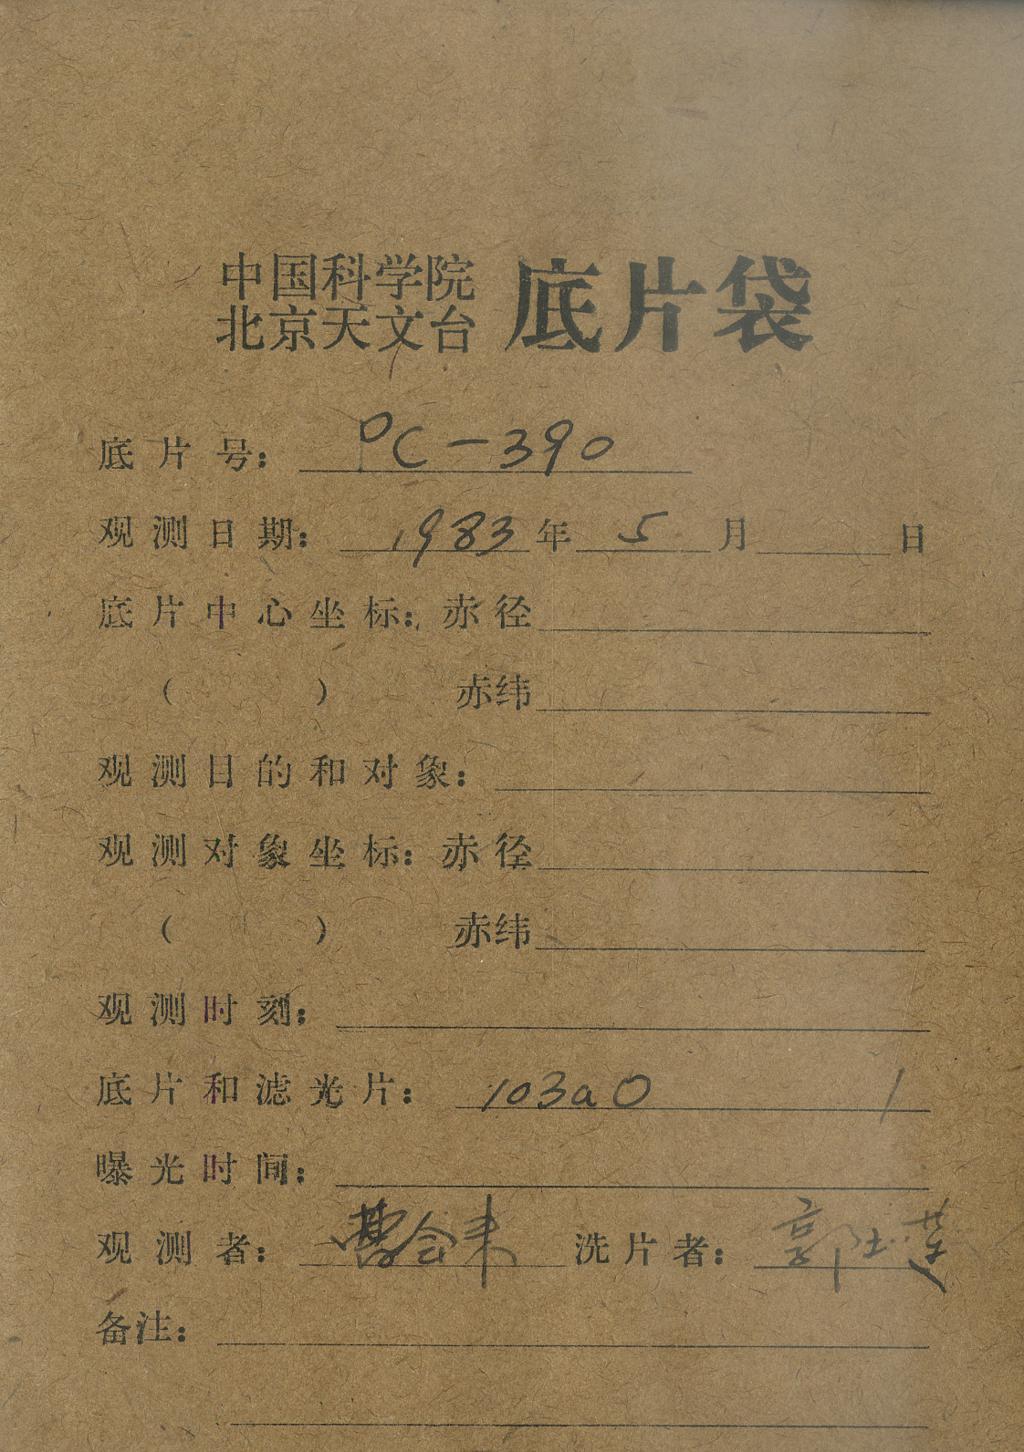 中国科学院
北京天文台 底片袋
底片号: PC-390
观测日期: 1983年 5 月 日
底片中心坐标: 赤径
( ) 赤纬
观测目的和对象:
观测对象坐标: 赤径
( ) 赤纬
观测时刻:
底片和滤光片: 103aO /
曝光时间:
观测者: 洗片者: 郭
备注: